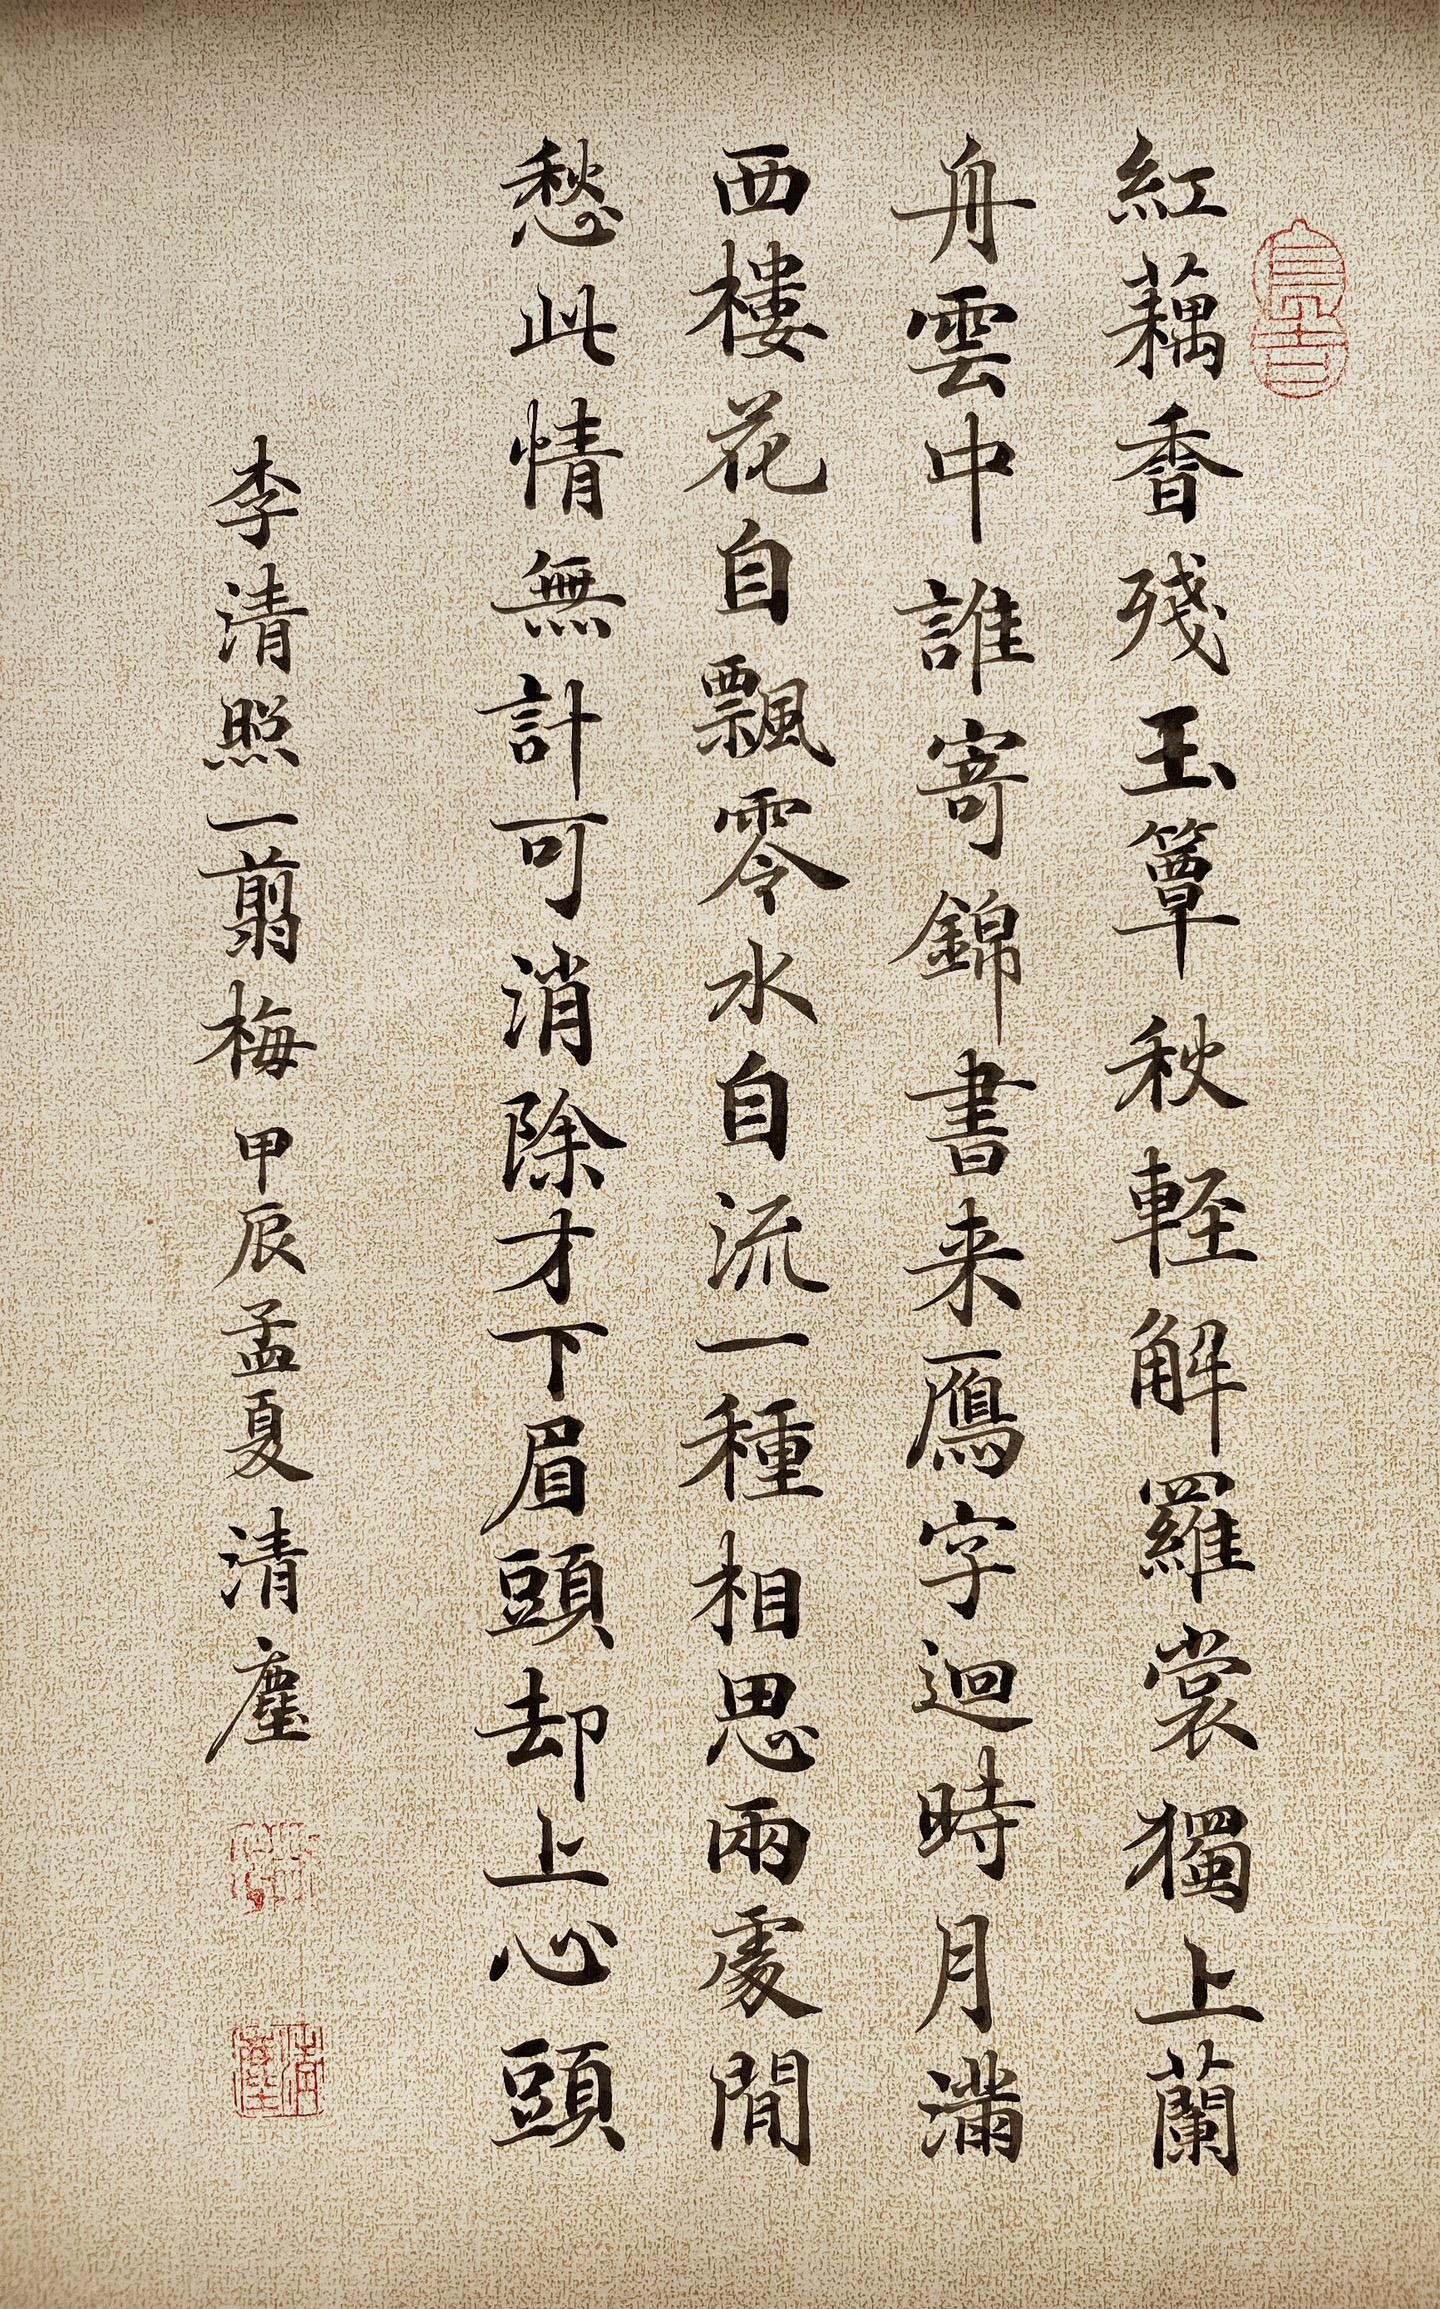 紅藕香殘玉簟秋軽解羅裳獨上蘭
舟雲中誰寄錦書来鴈字迴時月滿
西樓花自飄零水自流一種相思兩處閒
愁此情無計可消除才下眉頭却上心頭
李清照一剪梅甲辰孟夏清塵
清塵